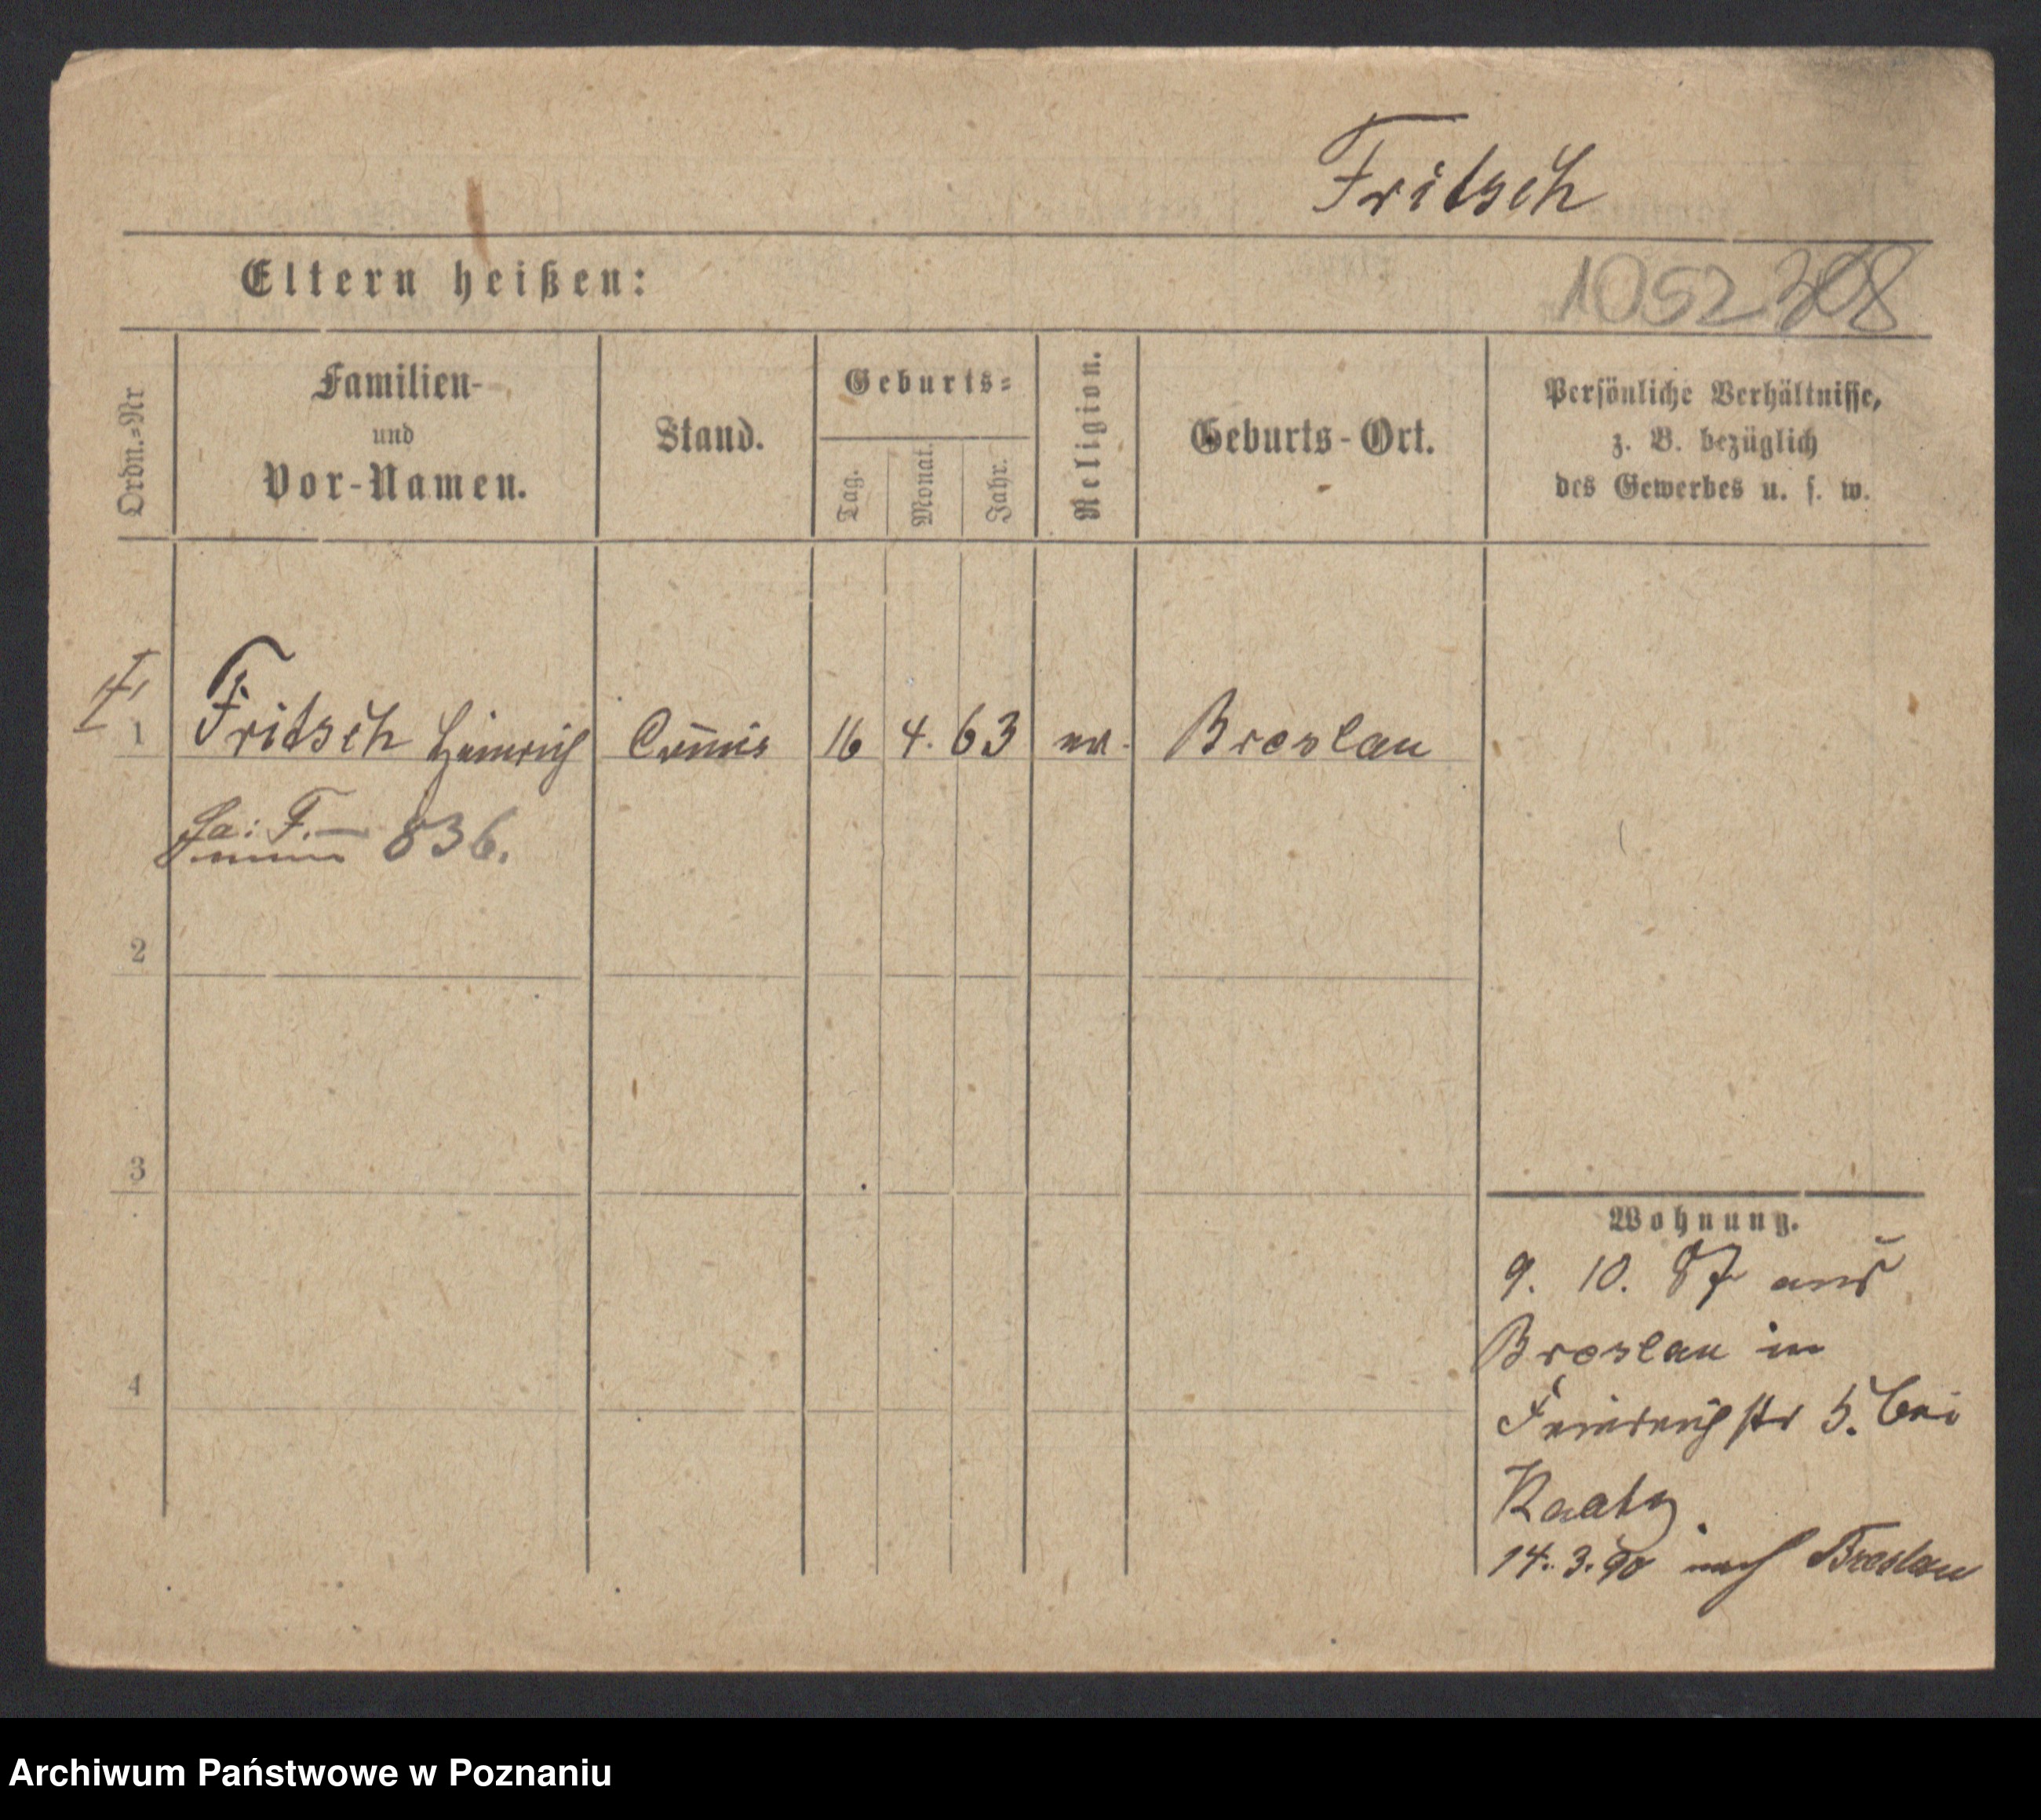 Fritsch
Eltern heißen:
1052
Ordn.=Nr
Familien-
und
Vor-Namen.
Stand.
Geburts=
Tag.
Monat.
Jahr.
Religion.
Geburts-Ort.
Persönliche Verhältnisse,
z. B. bezüglich
des Gewerbes u. s. w.
1 Fritsch Heinrich Commis 16 4. 63 ev. Breslau
fa: F. — 836.
2
3
4
Wohnung.
9. 10. 87 aus
Breslau in
Friedrichstr 5. bei
Raatz
14. 3. 90 nach Breslau
Archiwum Państwowe w Poznaniu